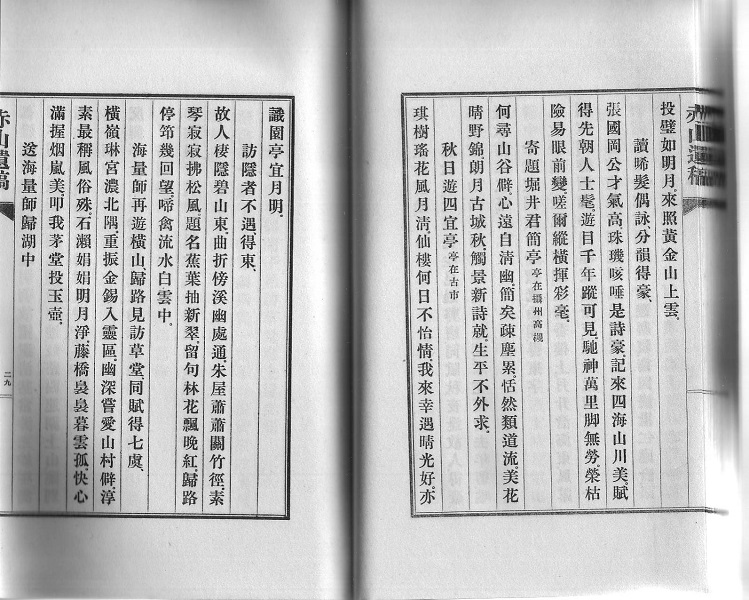 赤山遺稿
投璧如明月。來照黃金山上雲。
讀晞髮偶詠。分韻得豪。
張國岡公才氣高。珠璣咳唾是詩豪。記來四海山川美。賦
得先朝人士髦。遊目千年蹤可見。馳神萬里脚無勞。榮枯
險易眼前變。嗟爾縱橫揮彩毫。
寄題堀井君簡亭 亭在攝州高槻
何尋山谷僻。心遠自淸幽。簡矣疎塵累。恬然類道流。美花
晴野錦。朗月古城秋。觸景新詩就。生平不外求。
秋日遊四宜亭 亭在古市
琪樹瑤花風月淸。仙樓何日不怡情。我來幸遇晴光好。亦
識園亭宜月明。
訪隱者不遇。得東。
故人棲隱碧山東。曲折傍溪幽處通。朱屋蕭蕭關竹徑。素
琴寂寂拂松風。題名蕉葉抽新翠。留句林花飄晚紅。歸路
停筇幾回望。啼禽流水白雲中。
海量師再遊橫山歸路見訪草堂。同賦得七虞。
橫嶺琳宮濃北隅。重振金錫入靈區。幽深嘗愛山村僻。淳
素最稱風俗殊。石瀨娟娟明月淨。藤橋裊裊暮雲孤。快心
滿握烟嵐美。叩我茅堂投玉壺。
送海量師歸湖中
赤山遺稿
二九